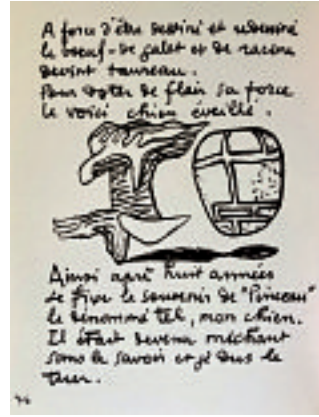 A force d'être dessiné et redessiné
le boeuf-de galet et de racine
devint taureau.
Pour doter de flair sa force
le voici chien éveillé.
Ainsi après huit années
se fixe le souvenir de "Pinceau"
le dénommé tel, mon chien.
Il était devenu méchant
sans le savoir et je dus le
tuer.